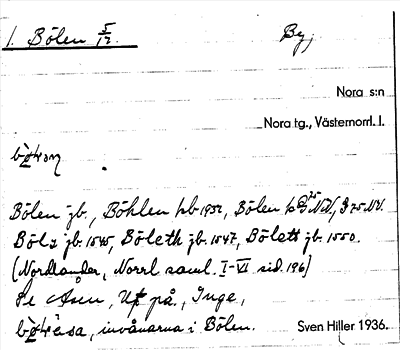 1. Bölen 5/12. By,
Nora s:n
Nora tg., Västernorrl. l.
Bölen jb., Böhlen kb 1932, Bölen
Böle jb. 1545, Böleth jb. 1547, Bölett jb. 1550.
(Nordlander, Norrl saml. I-VI sid. 196)
Se Åsen, Ut på, Inge,
invånarna i Bölen. Sven Hiller 1936.